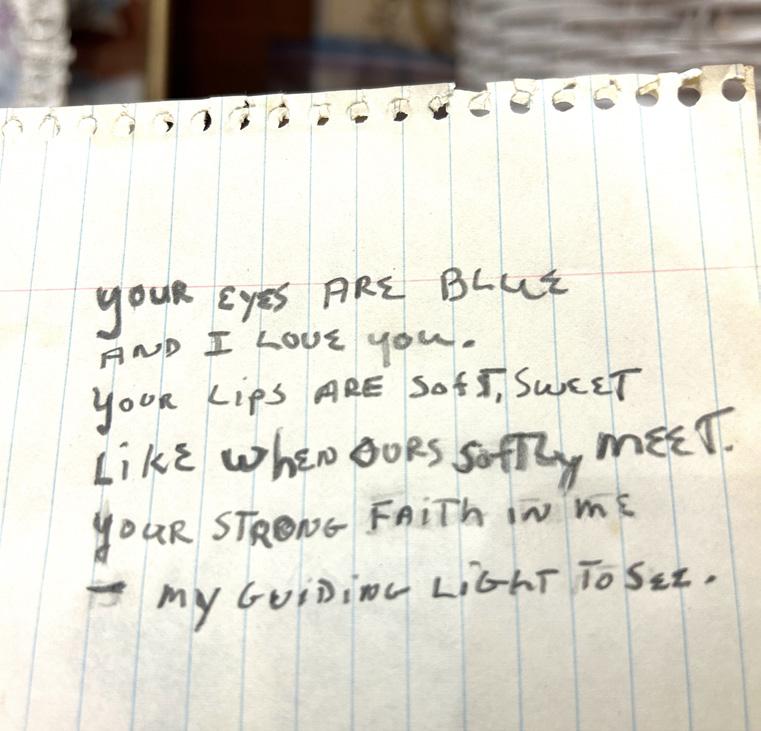 YOUR EYES ARE BLUE
AND I LOVE you.
YOUR LipS ARE SofT, SWEET
LiKE WhEN OURS SofTLy MEET.
YOUR STRONG FAiTh IN ME
- My GUiDiNG LiGhT To SEE.